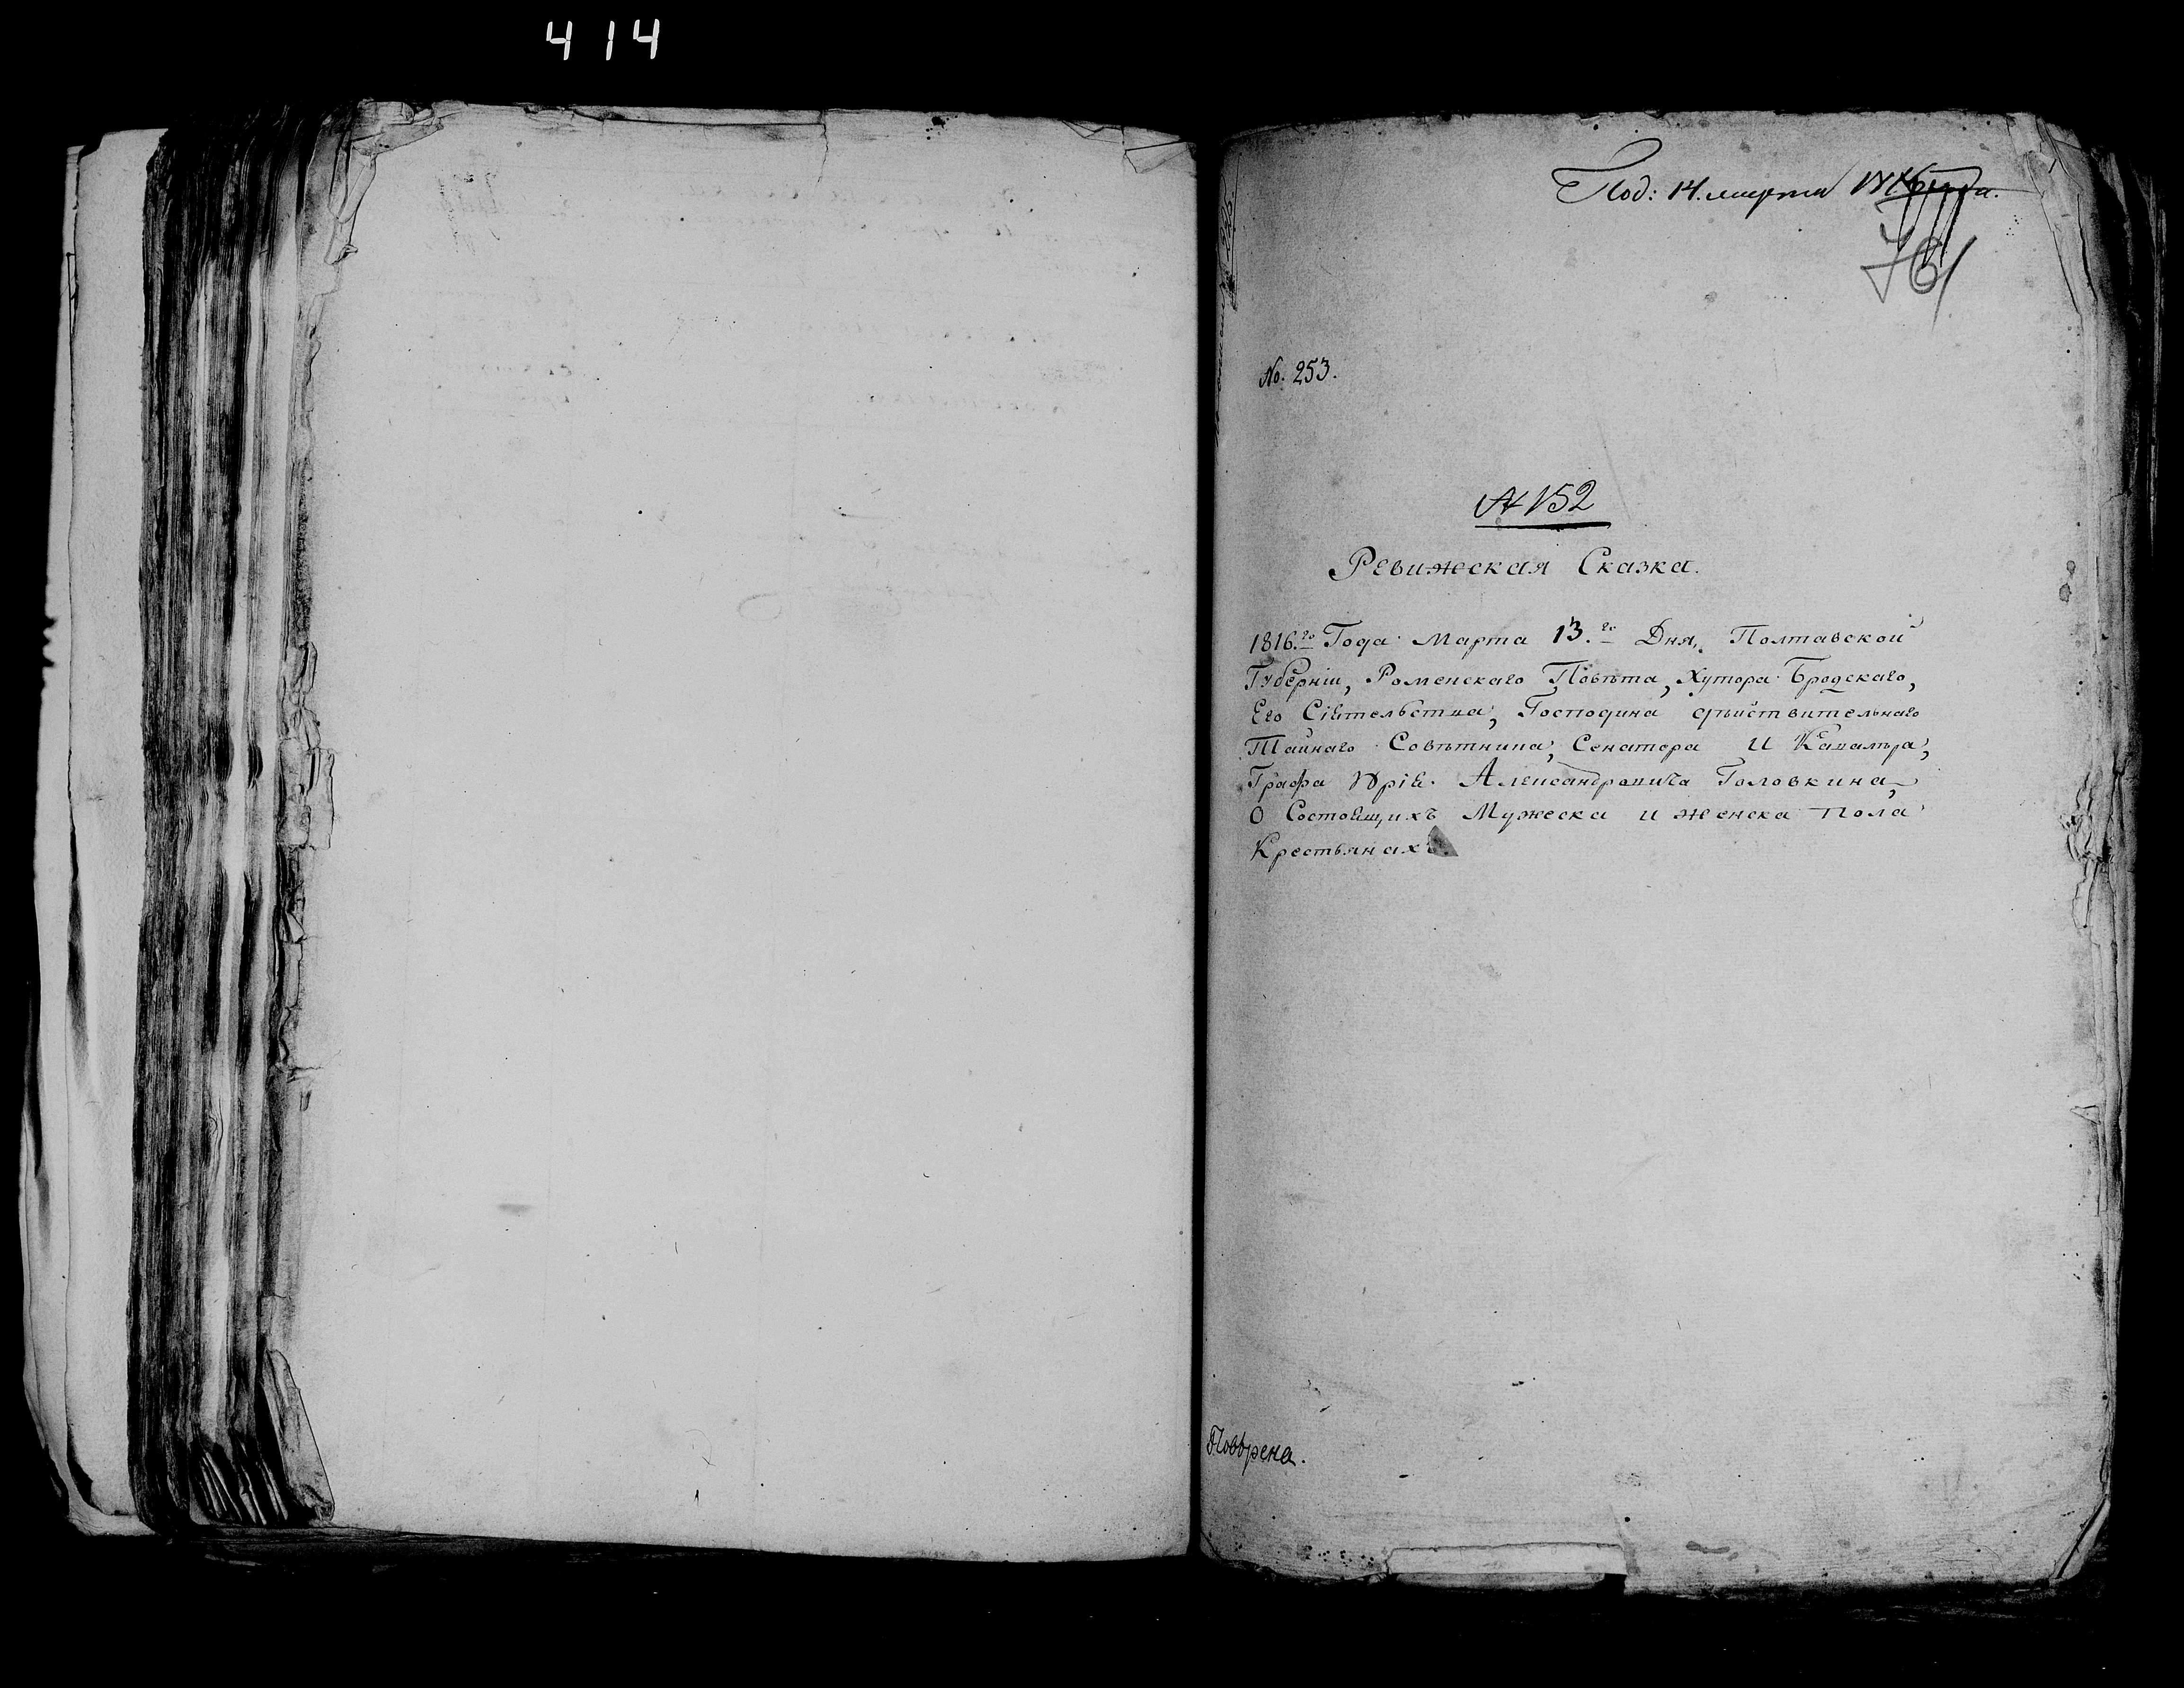 414
Под: 14. марта 1816 года.
761
No. 253.
№ 152
Ревижская Сказка.
1816.го Года Марта 13.го Дня, Полтавской
Губерніи, Роменскаго Повѣта, Хутора Бродскаго,
Его Сіятельства, Господина дѣйствительнаго
Тайнаго Совѣтника, Сенатора и Кавалѣра,
Графа Юрія Александровича Головкина,
О Состоящихъ Мужеска и женска пола
Крестьянахъ.
Повѣрена.